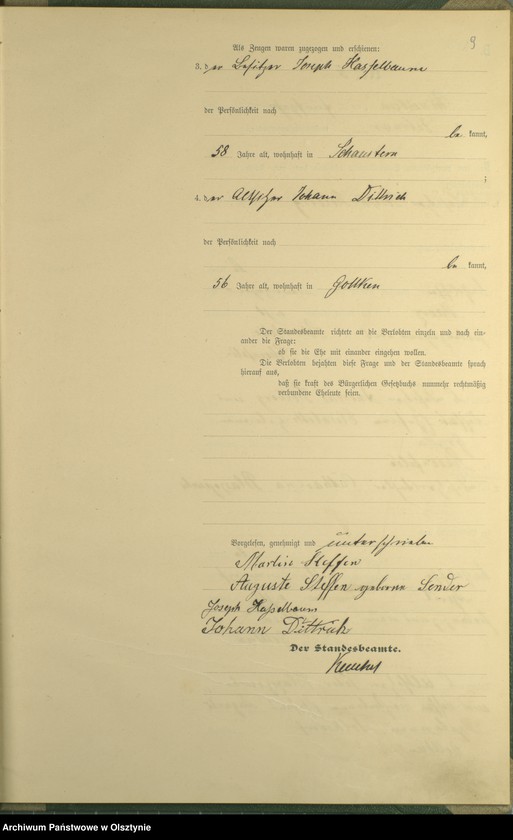 9
Als Zeugen waren zugezogen und erschienen:
3. der Besitzer Joseph Hasselbaum
der Persönlichkeit nach
be kannt,
58 Jahre alt, wohnhaft in Schaustern
;
4. der Altsitzer Johann Dittrich
der Persönlichkeit nach
be kannt,
56 Jahre alt, wohnhaft in Gottken
Der Standesbeamte richtete an die Verlobten einzeln und nach ein-
ander die Frage:
ob sie die Ehe mit einander eingehen wollen.
Die Verlobten bejahten diese Frage und der Standesbeamte sprach
hierauf aus,
daß sie kraft des Bürgerlichen Gesetzbuchs nunmehr rechtmäßig
verbundene Eheleute seien.
Vorgelesen, genehmigt und unterschrieben
Martin Steffen
Auguste Steffen geborene Sender
Joseph Hasselbaum
Johann Dittrich
Der Standesbeamte.
Archiwum Państwowe w Olsztynie